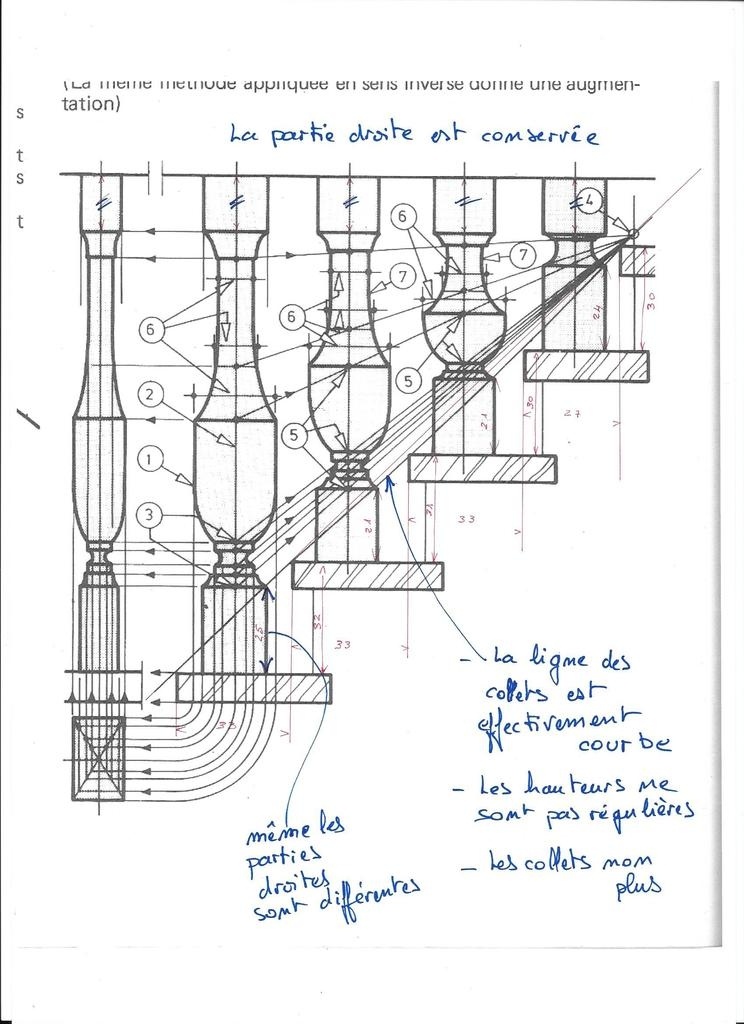 (La même méthode appliquée en sens inverse donne une augmen-
tation)
s
t
s
t
La partie droite est conservée
4
6
7
7
6
30
24
6
5
2
30
27
21
5
1
31
33
21
3
32
33
25
33
- La ligne des
collets est
effectivement
courbe
- Les hauteurs ne
sont pas régulières
- Les collets non
plus
même les
parties
droites
sont différentes